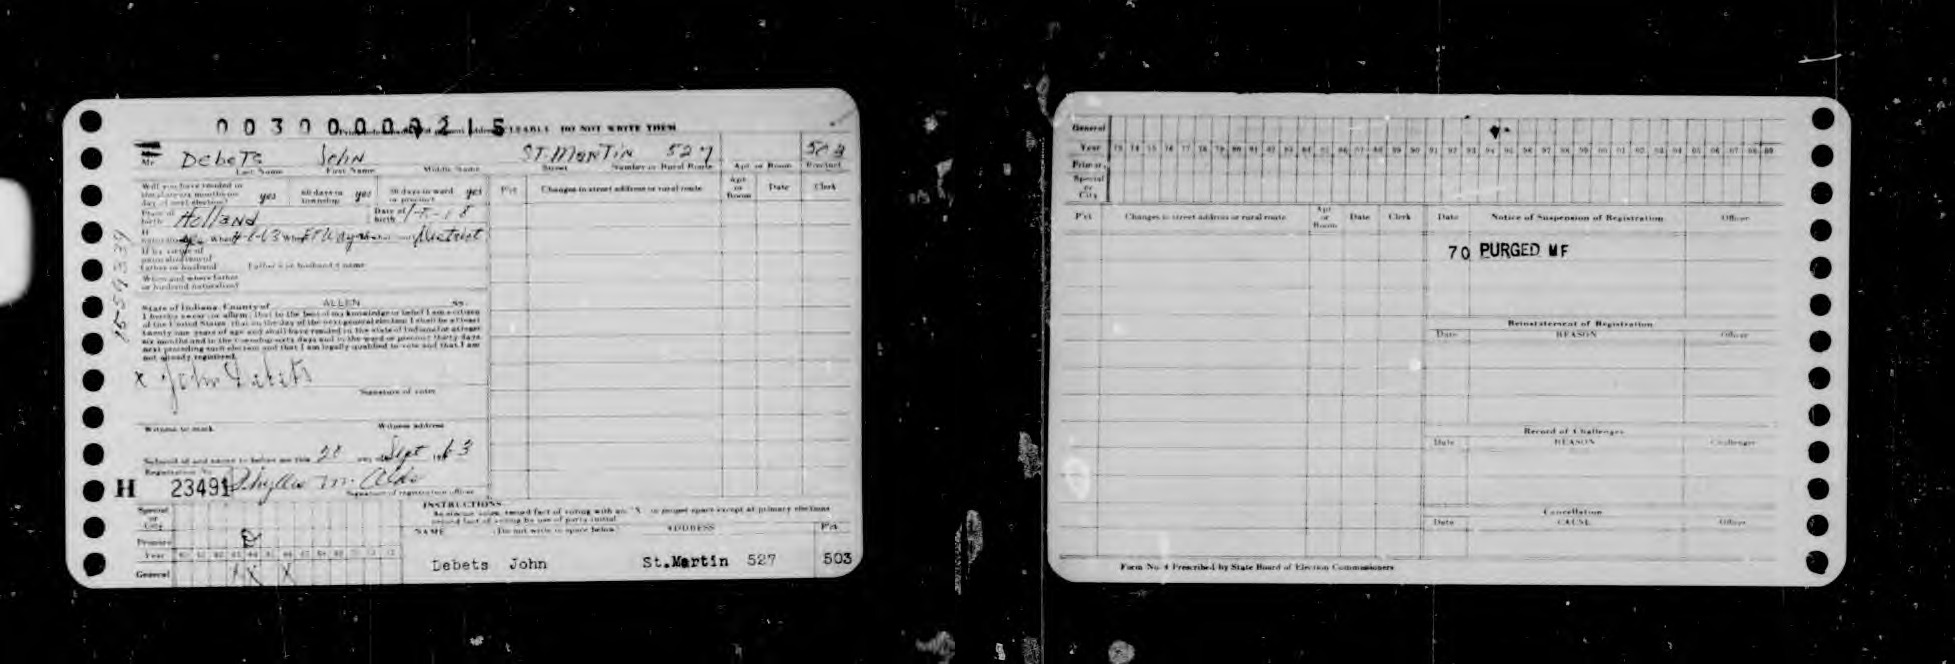 00300000215
CLEARABLE DO NOT WRITE THEM
Mr. Debets John St. Martin 527 503
Last Name First Name Middle Name Street Number or Rural Route Apt or Room Precinct
Will you have resided in the state six months on day of next election? yes 60 days in township yes 30 days in ward or precinct yes
Pct Changes to street address or rural route Apt or Room Date Clerk
State of birth Holland Date of birth
If naturalized yes When 4-1-63 Where Ft Wayne District
If by virtue of naturalization of father or husband Father's or husband's name
When and where father or husband naturalized
State of Indiana, County of ALLEN ss.
I hereby swear (or affirm) that to the best of my knowledge or belief I am a citizen
of the United States, that on the day of the next general election I shall be at least
twenty one years of age and shall have resided in the state of Indiana for at least
six months and in the township sixty days and in the ward or precinct thirty days
next preceding such election and that I am legally qualified to vote and that I am
not already registered.
x John Debets
Signature of voter
Witness to mark Witness address
Subscribed and sworn to before me this 28 day of Sept 1963
Registration No.
H 23491 Phyllis M.
Signature of registration officer
INSTRUCTIONS
At election time, record fact of voting with an "X" in proper space except at primary elections
record fact of voting by use of party initial.
NAME (Do not write in space below) ADDRESS Pct
Debets John St.Martin 527 503
Special or City
Primary
Year
General X X X
General
Year 73 74 75 76 77 78 79 80 81 82 83 84 85 86 87 88 89 90 91 92 93 94 95 96 97 98 99 00 01 02 03 04 05 06 07 08 09
Primary
Special or City
Pct Changes to street address or rural route Apt or Room Date Clerk Date Notice of Suspension of Registration Officer
70 PURGED MF
Reinstatement of Registration
Date REASON Officer
Record of Challenges
Date REASON Challenger
Cancellation
Date CAUSE Officer
Form No. 4 Prescribed by State Board of Election Commissioners